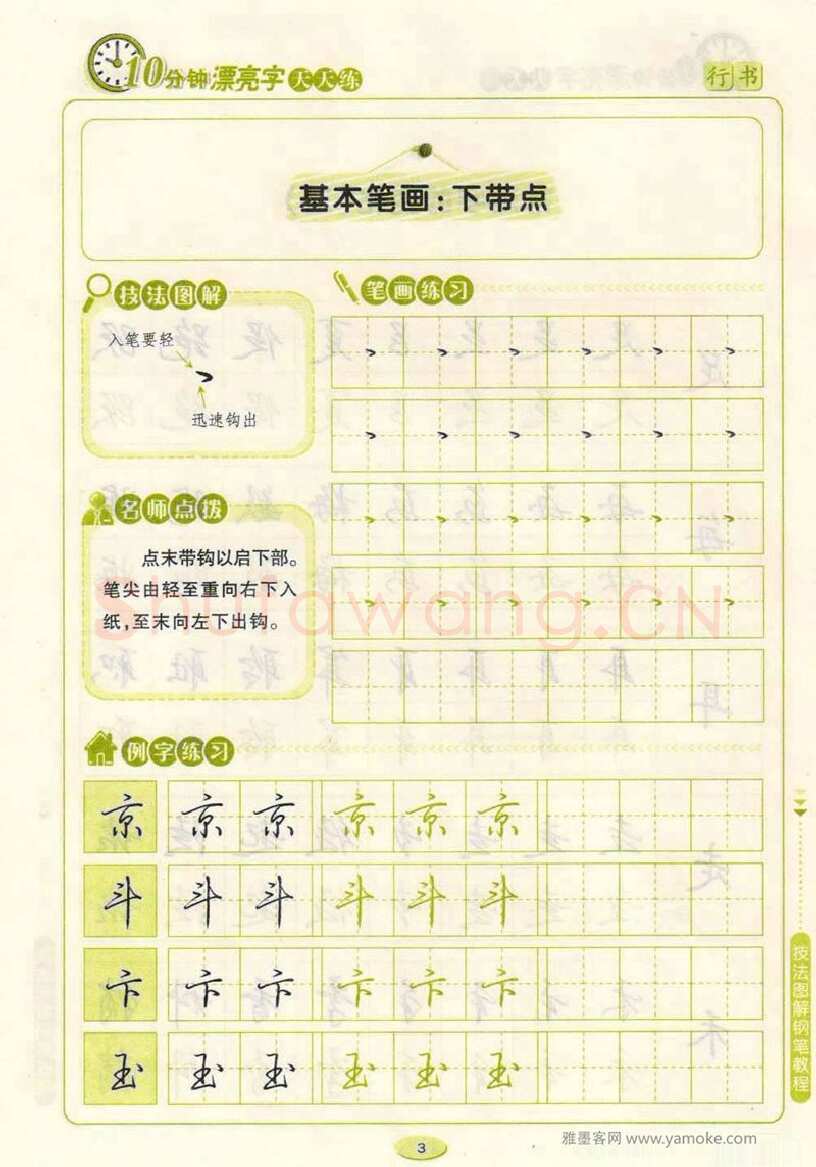 10分钟漂亮字天天练
行书
基本笔画：下带点
技法图解
入笔要轻
迅速钩出
笔画练习
名师点拨
点末带钩以启下部。
笔尖由轻至重向右下入
纸，至末向左下出钩。
shufawang.CN
例字练习
京 京 京 京 京 京
斗 斗 斗 斗 斗 斗
卞 卞 卞 卞 卞 卞
玉 玉 玉 玉 玉 玉
技法图解钢笔教程
3
雅墨客网 www.yamoke.com